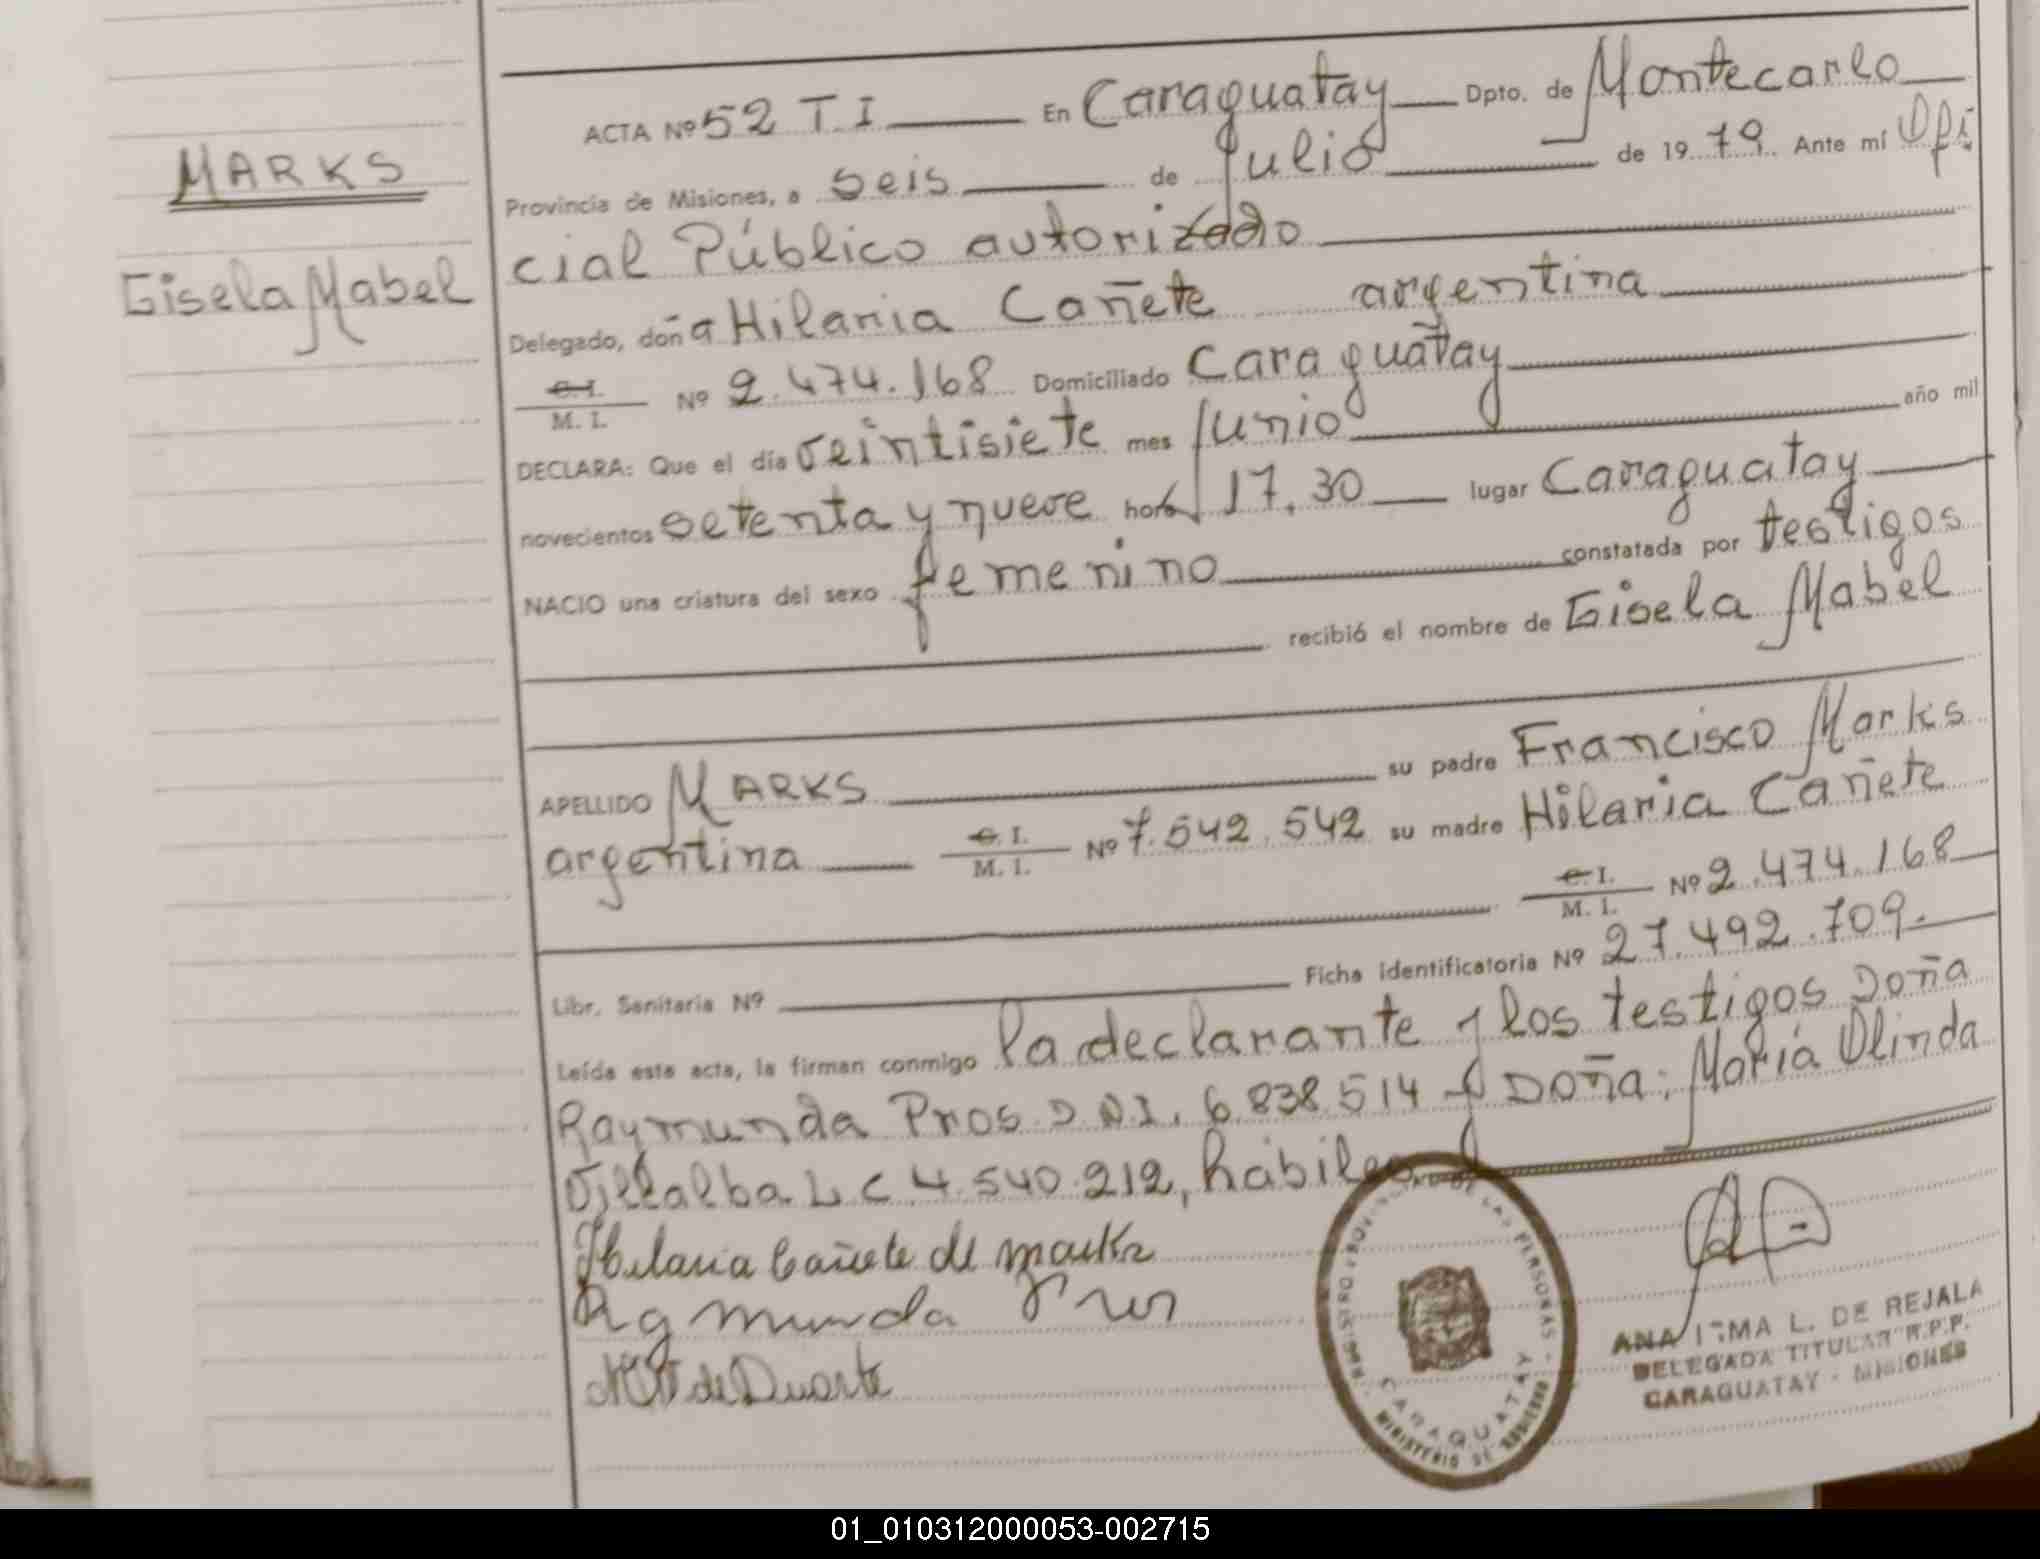 MARKS
Gisela Mabel
ACTA Nº 52 T. I En Caraguatay Dpto. de Montecarlo
Provincia de Misiones, a seis de Julio de 1979. Ante mí Ofi
cial Público autorizado
Delegado, doña Hilaria Cañete argentina
C. I. / M. I. Nº 2.474.168 Domiciliado Caraguatay
DECLARA: Que el día veintisiete mes Junio año mil
novecientos setenta y nueve hora 17.30 lugar Caraguatay
NACIO una criatura del sexo femenino constatada por testigos
recibió el nombre de Gisela Mabel
APELLIDO MARKS su padre Francisco Marks
argentina C. I. / M. I. Nº 7.542.542 su madre Hilaria Cañete
C. I. / M. I. Nº 2.474.168
Libr. Sanitaria Nº Ficha identificatoria Nº 27.492.709.
Leída esta acta, la firman conmigo la declarante y los testigos Doña
Raymunda Pros D.N.I. 6.838.514 y Doña: María Olinda
Villalba L C 4.540.212, hábiles
Hilaria Cañete de Marks
de Duarte
REGISTRO PROVINCIAL DE LAS PERSONAS
CARAGUATAY
MINISTERIO DE GOBIERNO
ANA IRMA L. DE REJALA
DELEGADA TITULAR R.P.P.
CARAGUATAY - MISIONES
01_010312000053-002715